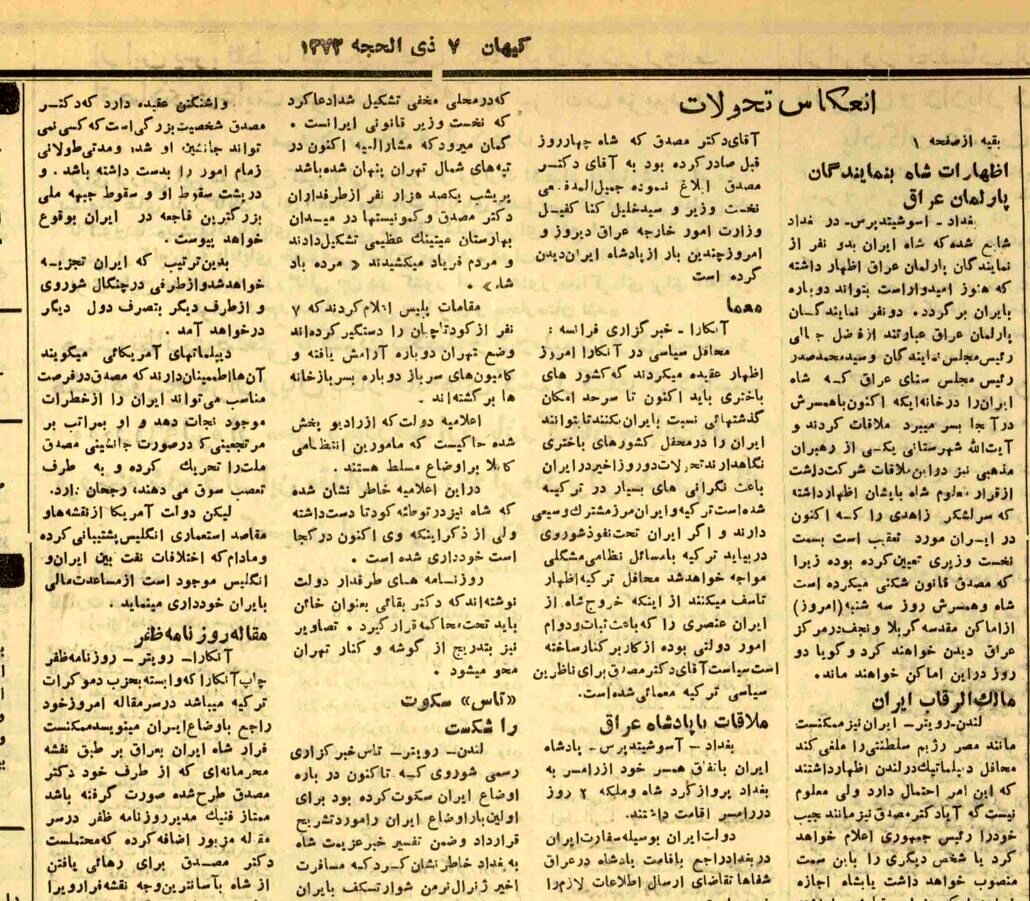 کیهان ۷ ذی الحجه ۱۳۷۲
انعکاس تحولات
بقیه ازصفحه ۱
اظهارات شاه بنمایندگان
پارلمان عراق
بغداد - اسوشیتدپرس- در بغداد
شایع شده‌که شاه ایران بدو نفر از
نمایندگان پارلمان عراق اظهار داشته
که هنوز امیدواراست بتواند دوباره
بایران برگردد. دونفر نمایندگان
پارلمان عراق عبارتند ازفاضل جمالی
رئیس‌مجلس‌نمایندگان وسیدمحمدصدر
رئیس مجلس سنای عراق که شاه
ایران‌را درخانه‌ایکه اکنون‌باهمسرش
در آنجا بسر میبرد ملاقات کردند و
آیت‌الله شهرستانی یکی از رهبران
مذهبی نیز دراین‌ملاقات شرکت‌داشت
ازقرار معلوم شاه بایشان اظهارداشته
که سرلشکر زاهدی را که اکنون
در ایران مورد تعقیب است بسمت
نخست وزیری تعیین‌کرده بوده زیرا
که مصدق قانون شکنی میکرده است
شاه وهمسرش روز سه شنبه(امروز)
ازاماکن مقدسه‌کربلا ونجف‌درمرکز
عراق دیدن خواهند کرد وگویا دو
روز دراین اماکن خواهند ماند.
مالک‌الرقاب ایران
لندن-رویتر- ایران‌نیزممکنست
مانند مصر رژیم سلطنتی‌را ملغی‌کند
محافل دیپلماتیک‌درلندن اظهارداشتند
که این امر احتمال دارد ولی معلوم
نیست‌که آیادکترمصدق‌نیزمانند نجیب
خودرا رئیس جمهوری اعلام خواهد
کرد یا شخص دیگری را باین سمت
منصوب خواهد داشت یابشاه اجازه
آقای‌دکتر مصدق که شاه چهارروز
قبل صادرکرده بود به آقای دکتر
مصدق ابلاغ نموده جمیل‌المدفعی
نخست وزیر و سیدخلیل کنا کفیل
وزارت امور خارجه عراق دیروز و
امروزچندین بار ازپادشاه ایران‌دیدن
کرده است
معما
آنکارا - خبرگزاری فرانسه :
محافل سیاسی در آنکارا امروز
اظهار عقیده میکردند که‌کشور های
باختری باید اکنون تا سرحد امکان
گذشتهائی نسبت بایران‌بکنندتابتوانند
ایران را درمحفل کشورهای باختری
نگاهدارندتحولات‌دوروزاخیردرایران
باعث نگرانی های بسیار در ترکیه
شده‌است‌ترکیه‌وایران‌مرزمشترک‌وسیعی
دارند و اگر ایران تحت‌نفوذشوروی
دربیاید ترکیه بامسائل نظامی‌مشکلی
مواجه خواهدشد محافل ترکیه‌اظهار
تاسف میکنند از اینکه خروج‌شاه از
ایران عنصری را که‌باعث‌ثبات‌ودوام
امور دولتی بوده ازکاربرکنارساخته
است‌سیاست‌آقای‌دکترمصدق‌برای‌ناظرین
سیاسی ترکیه معمائی‌شده‌است.
ملاقات باپادشاه عراق
بغداد - آسوشیتدپرس- پادشاه
ایران باتفاق همسر خود ازرامسر به
بغداد پروازکرد شاه وملکه ۲ روز
دررامسر اقامت داشتند.
دولت‌ایران بوسیله‌سفارت‌ایران
دربغدادراجع باقامت پادشاه درعراق
شفاها تقاضای ارسال اطلاعات لازم‌را
که‌درمحلی مخفی تشکیل شدادعاکرد
که نخست وزیر قانونی ایرانست .
گمان میرودکه مشارالیه اکنون در
تپه‌های شمال تهران پنهان شده‌باشد
پریشب یکصد هزار نفر ازطرفداران
دکتر مصدق وکمونیستها در میدان
بهارستان میتینک عظیمی تشکیل‌دادند
و مردم فریاد میکشیدند « مرده باد
شاه» .
مقامات پلیس اعلام‌کردندکه ۷
نفر ازکودتاچیان را دستگیرکرده‌اند
وضع تهران دوباره آرامش یافته و
کامیون‌های سرباز دوباره بسربازخانه
ها برگشته‌اند .
اعلامیه دولت‌که ازرادیو پخش
شده حاکیست که مامورین انتظامی
کاملا براوضاع مسلط هستند .
دراین اعلامیه خاطر نشان شده
که شاه نیزدرتوطئه کودتا دست‌داشته
ولی از ذکراینکه وی اکنون درکجا
است خودداری شده است .
روزنامه های طرفدار دولت
نوشته‌اندکه دکتر بقائی بعنوان خائن
باید تحت‌محاکمه‌قرارگیرد . تصاویر
نیز بتدریج از گوشه و کنار تهران
محو میشود .
«تاس» سکوت
را شکست
لندن- رویتر- تاس‌خبرگزاری
رسمی شوروی که تاکنون در باره
اوضاع ایران سکوت‌کرده بود برای
اولین‌باراوضاع ایران راموردتشریح
قرارداد وضمن تفسیر خبرعزیمت شاه
به‌بغداد خاطرنشان‌کردکه مسافرت
اخیر ژنرال‌نرمن شوارتسکف بایران
واشنگتن عقیده دارد که‌دکتر
مصدق شخصیت‌بزرگی‌است‌که‌کسی‌نمی
تواند جانشین او شده ومدتی‌طولانی
زمام امور را بدست داشته باشد . و
درپشت سقوط او و سقوط جبهه ملی
بزرگترین فاجعه در ایران بوقوع
خواهد پیوست .
بدین‌ترتیب که ایران تجزیه
خواهدشدوازطرفی درچنگال شوروی
و ازطرف دیگر بتصرف دول دیگر
درخواهد آمد .
دیپلماتهای آمریکائی میگویند
آن‌هااطمینان‌دارندکه مصدق‌درفرصت
مناسب می‌تواند ایران را ازخطرات
موجود نجات دهد و او بمراتب بر
مرتجعینی‌که درصورت جانشینی مصدق
ملت‌را تحریک کرده و به طرف
تعصب سوق می دهند، رجحان دارد.
لیکن دولت آمریکا ازنقشه‌هاو
مقاصد استعماری انگلیس‌پشتیبانی‌کرده
ومادام‌که اختلافات نفت بین ایران‌و
انگلیس موجود است ازمساعدت‌مالی
بایران خودداری مینماید .
مقاله‌روزنامه‌ظفر
آنکارا- رویتر - روزنامه‌ظفر
چاپ‌آنکاراکه‌وابسته‌بحزب دموکرات
ترکیه میباشد درسرمقاله امروزخود
راجع باوضاع‌ایران مینویسدممکنست
فرار شاه ایران بعراق بر طبق نقشه
محرمانه‌ای که از طرف خود دکتر
مصدق طرح‌شده صورت گرفته باشد
ممتاز فنیک مدیرروزنامه ظفر درسر
مقاله مزبور اضافه‌کرده که‌محتملست
دکتر مصدق برای رهائی یافتن
از شاه بآسانترین‌وجه نقشه‌فراروبرا